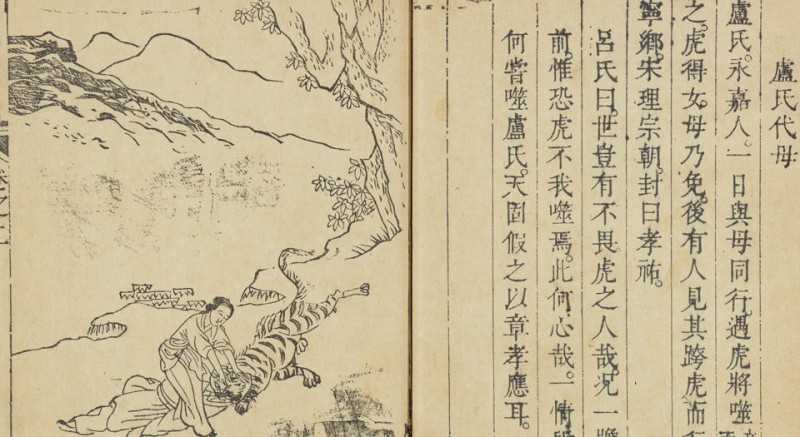 盧氏代母
盧氏。永嘉人。一日與母同行。遇虎將噬
之。虎得女。母乃免。後有人見其跨虎而
寧鄉。宋理宗朝。封曰孝祐。
呂氏曰。世豈有不畏虎之人哉。况一
前。惟恐虎不我噬焉。此何心哉。一情
何嘗噬盧氏。天固假之以章孝應耳。
卷之三